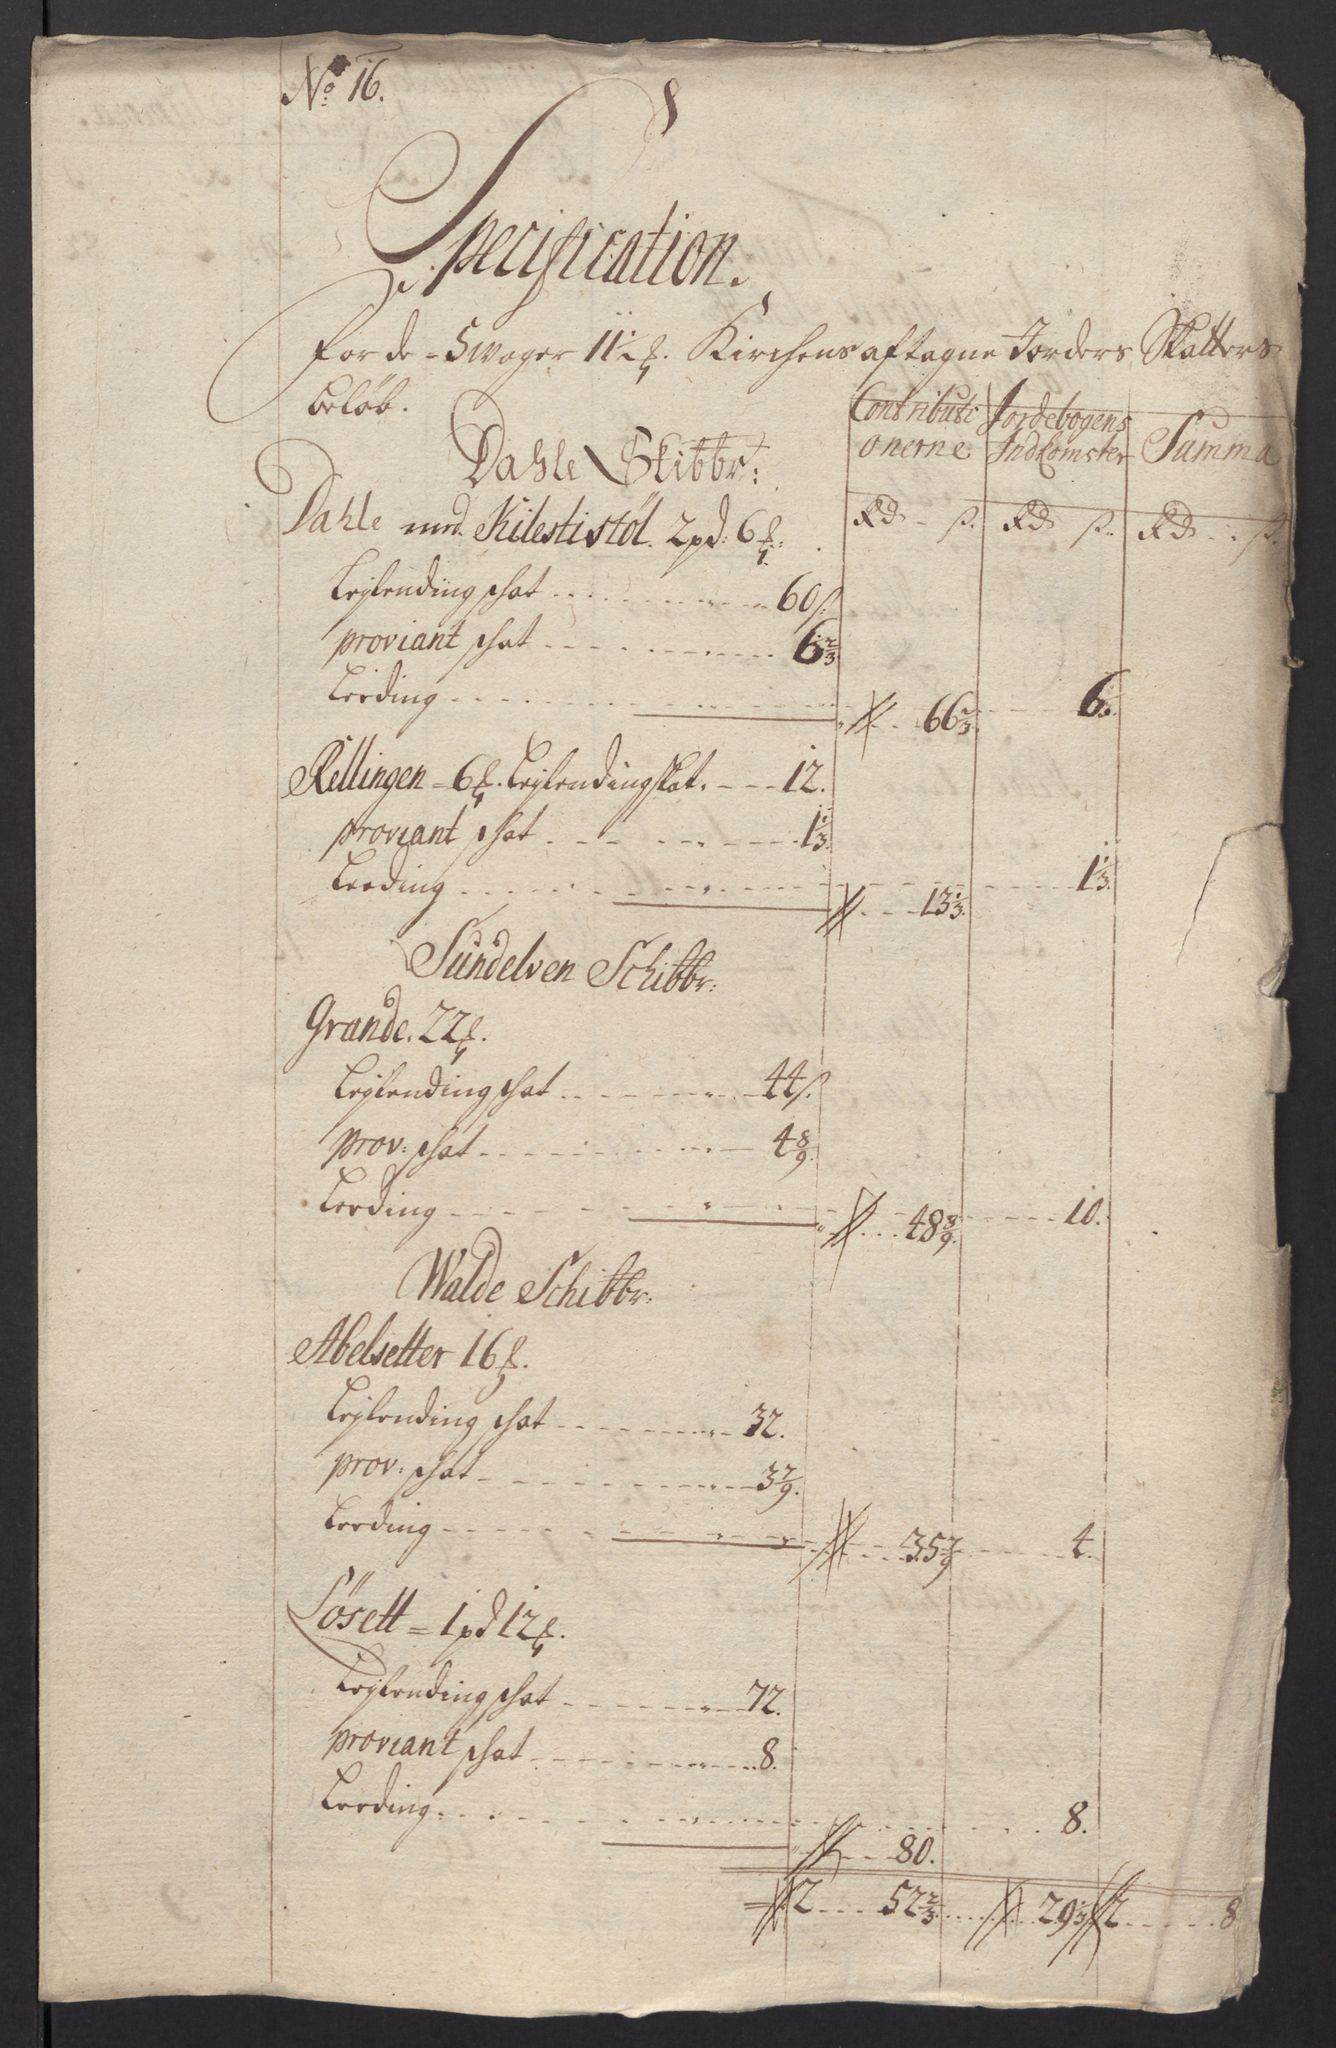 No 16.
Specification.
for de 5 woger 11 ½ Kirchens aftagne Jorders Skatters
beløb.
Contributi Jordebogens
onerne Indkomster Summa
Dahle Skibbr:
Rd ß. Rd ß. Rd ß.
Dahle med Kilestistøl. 2 pd: 6
Leylending schat 60 ß.
proviant schat 6 2/3
Leeding 66 2/3 6.
Rellingen 6 Leylending skat. 12.
proviant schat 1 1/3.
Leeding 13 1/3. 1 1/3.
Sundelven Schibbr:
Grande. 22
Leylending schat 44 ß.
prov: schat 4 8/9.
Leeding 48 8/9. 10.
Walde Schibbr:
Abelsetter 16
Leylending schat 32.
prov: schat 3 7/9.
Leeding 35 7/9 4.
Søsett = 1 pd 12
Leylending schat 72.
proviant schat 8.
Leeding: 8.
80.
2 52 2/3 29 1/3 2 8